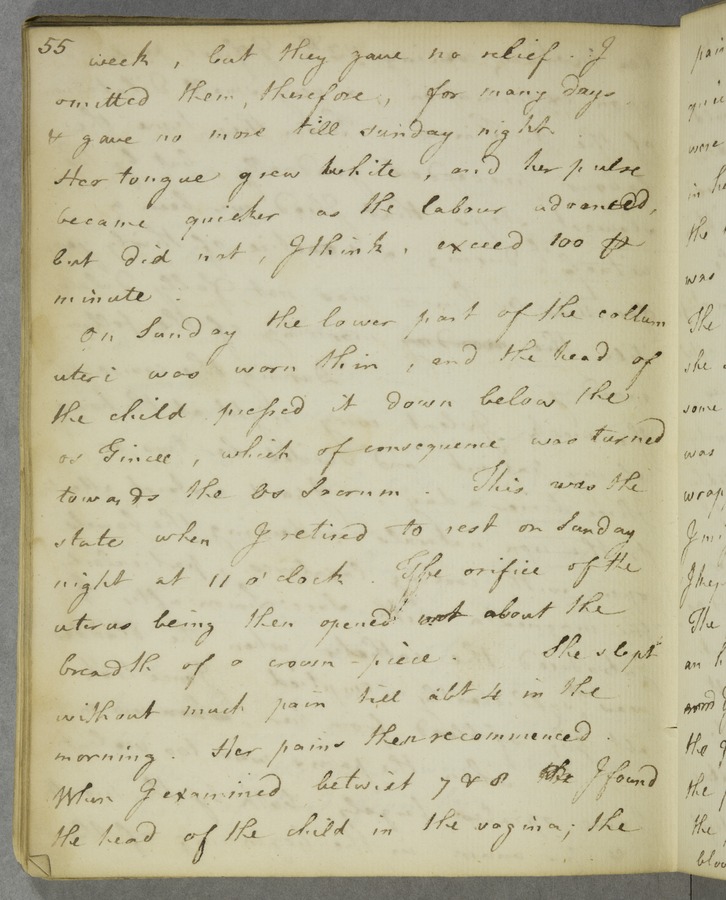 55
week, but they gave no relief. I
omitted them, therefore, for many days
& gave no more till sunday night.
Her tongue grew white, and her pulse
became quicker as the labour advanced,
but did not, I think, exceed 100
minute.
On Sunday the lower part of the collum
uteri was worn thin, and the head of
the child pressed it down below the
os Tincæ, which of consequence was turned
towards the Os Sacrum. This was the
state when I retired to rest on Sunday
night at 11 o'clock. The orifice of the
uterus being then opened about the
breadth of a crown-piece. She slept
without much pain till abt 4 in the
morning. Her pains then recommenced.
When I examined betwixt 7 & 8 I found
the head of the child in the vagina; the
pain
were
in he
the
was
The
she
some
was
wrap
The
an h
the
the
the
bloo